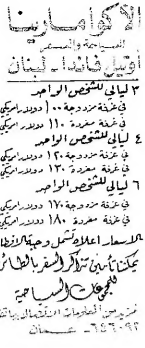 الأكوامارينا
للسياحة والسفر
أوتيل فاندا - لبنان
٣ ليالي للشخص الواحد
في غرفة مزدوجة ١٠٠ دولار امريكي
في غرفة مفردة ١١٠ دولار امريكي
٤ ليالي للشخص الواحد
في غرفة مزدوجة ١٢٠ دولار امريكي
في غرفة مفردة ١٣٠ دولار امريكي
٦ ليالي للشخص الواحد
في غرفة مزدوجة ١٧٠ دولار امريكي
في غرفة مفردة ١٨٠ دولار امريكي
الاسعار اعلاه تشمل وجبة الافطار
يمكننا تأمين تذاكر السفر بالطائرة
للمجموعات السياحية
لمزيد من المعلومات الاتصال بهاتف
٦٥٦٠٩٢ - عمان